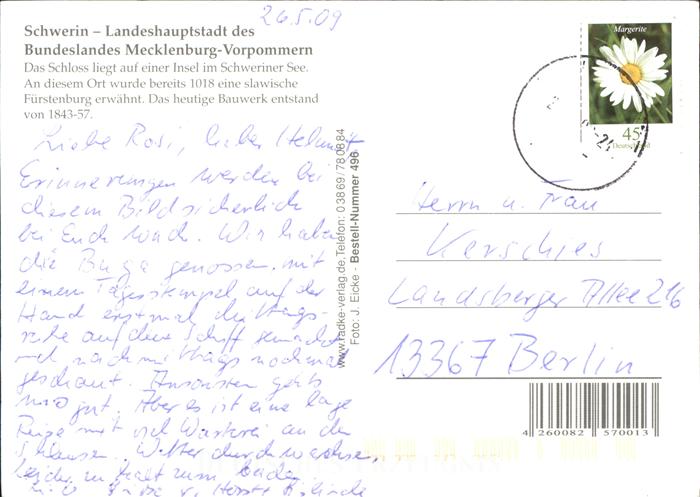 26.5.09
Schwerin – Landeshauptstadt des
Bundeslandes Mecklenburg-Vorpommern
Das Schloss liegt auf einer Insel im Schweriner See.
An diesem Ort wurde bereits 1018 eine slawische
Fürstenburg erwähnt. Das heutige Bauwerk entstand
von 1843-57.
Liebe Rosi, lieber Helmut
Erinnerungen werden bei
diesem Bild sicherlich
bei Euch wach. Wir haben
die Buga genossen. mit
einem Tagesstempel auf der
Hand erstmal die Mittags-
ruhe auf dem Schiff gemacht
und nachmittags nochmal
geschaut. Ansonsten gehts
uns gut. Aber es ist eine lange
Reise mit viel Warterei an den
Schleusen. Wetter durchwachsen,
leider zu kalt zum baden
www.radke-verlag.de, Telefon: 0 38 69 / 78 08 84
Foto: J. Eicke - Bestell-Nummer 496
Margerite
45
Deutschland
Herrn u. Frau
Kerschies
Landsberger Allee 216
13367 Berlin
4 260082 570013